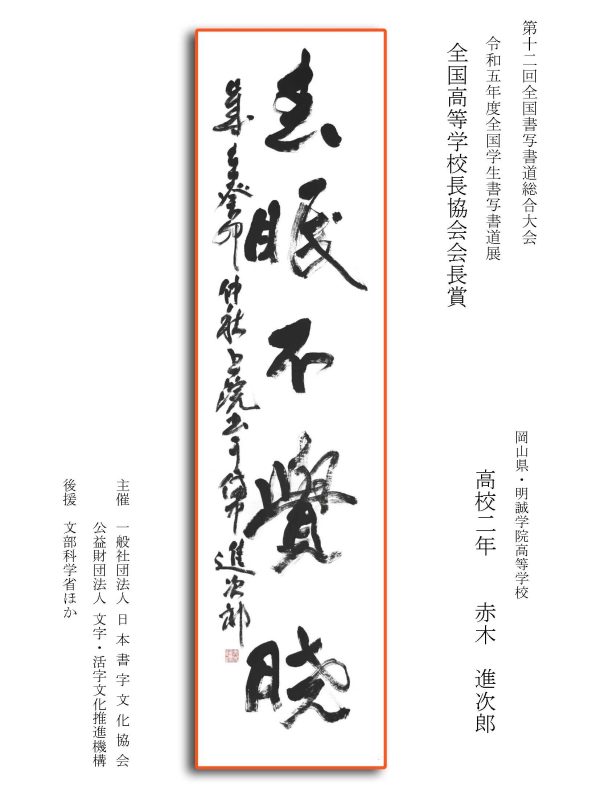 第十二回全国書写書道総合大会
令和五年度全国学生書写書道展
全国高等学校長協会会長賞
岡山県・明誠学院高等学校
高校二年 赤木 進次郎
春眠不覺暁
癸卯仲秋
進次郎
主催 一般社団法人 日本書字文化協会
公益財団法人 文字・活字文化推進機構
後援 文部科学省ほか